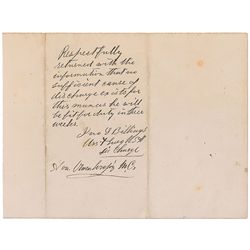 Respectfully
returned with the
information that no
sufficient cause of
discharge exists for
this man as he will
be fit for duty in three
weeks.
Jno S Billings
Asst Surg U.S.A
in Charge
Hon. Owen Lovejoy M.C.